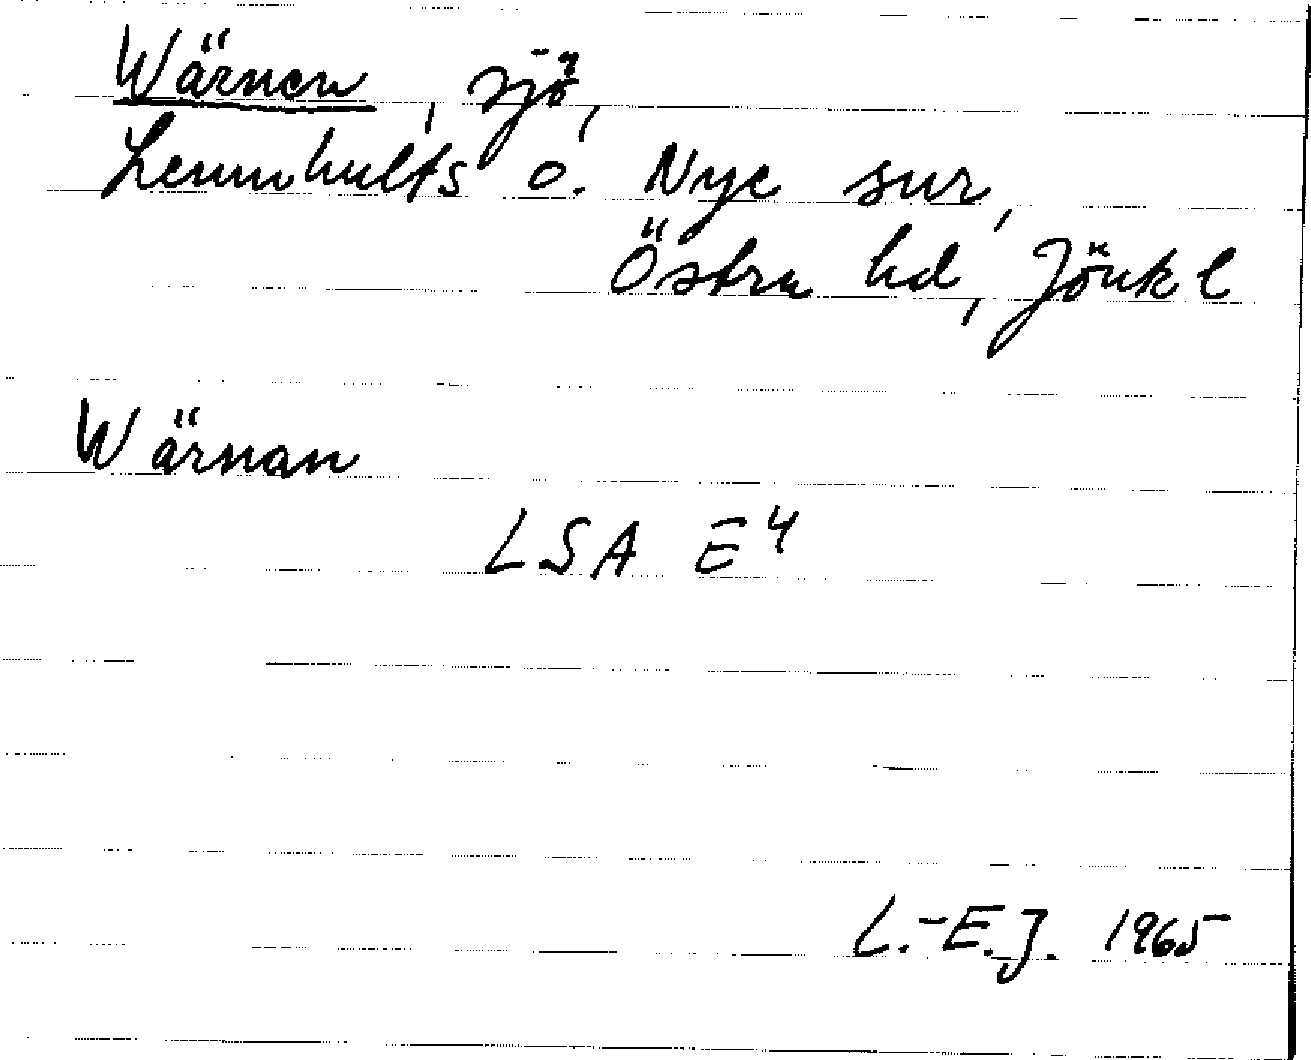 Wärnen, sjö,
Lemnhults o. Nye snr,
Östra hd, Jönk l
Wärnan
LSA E4
L.-E.J. 1965